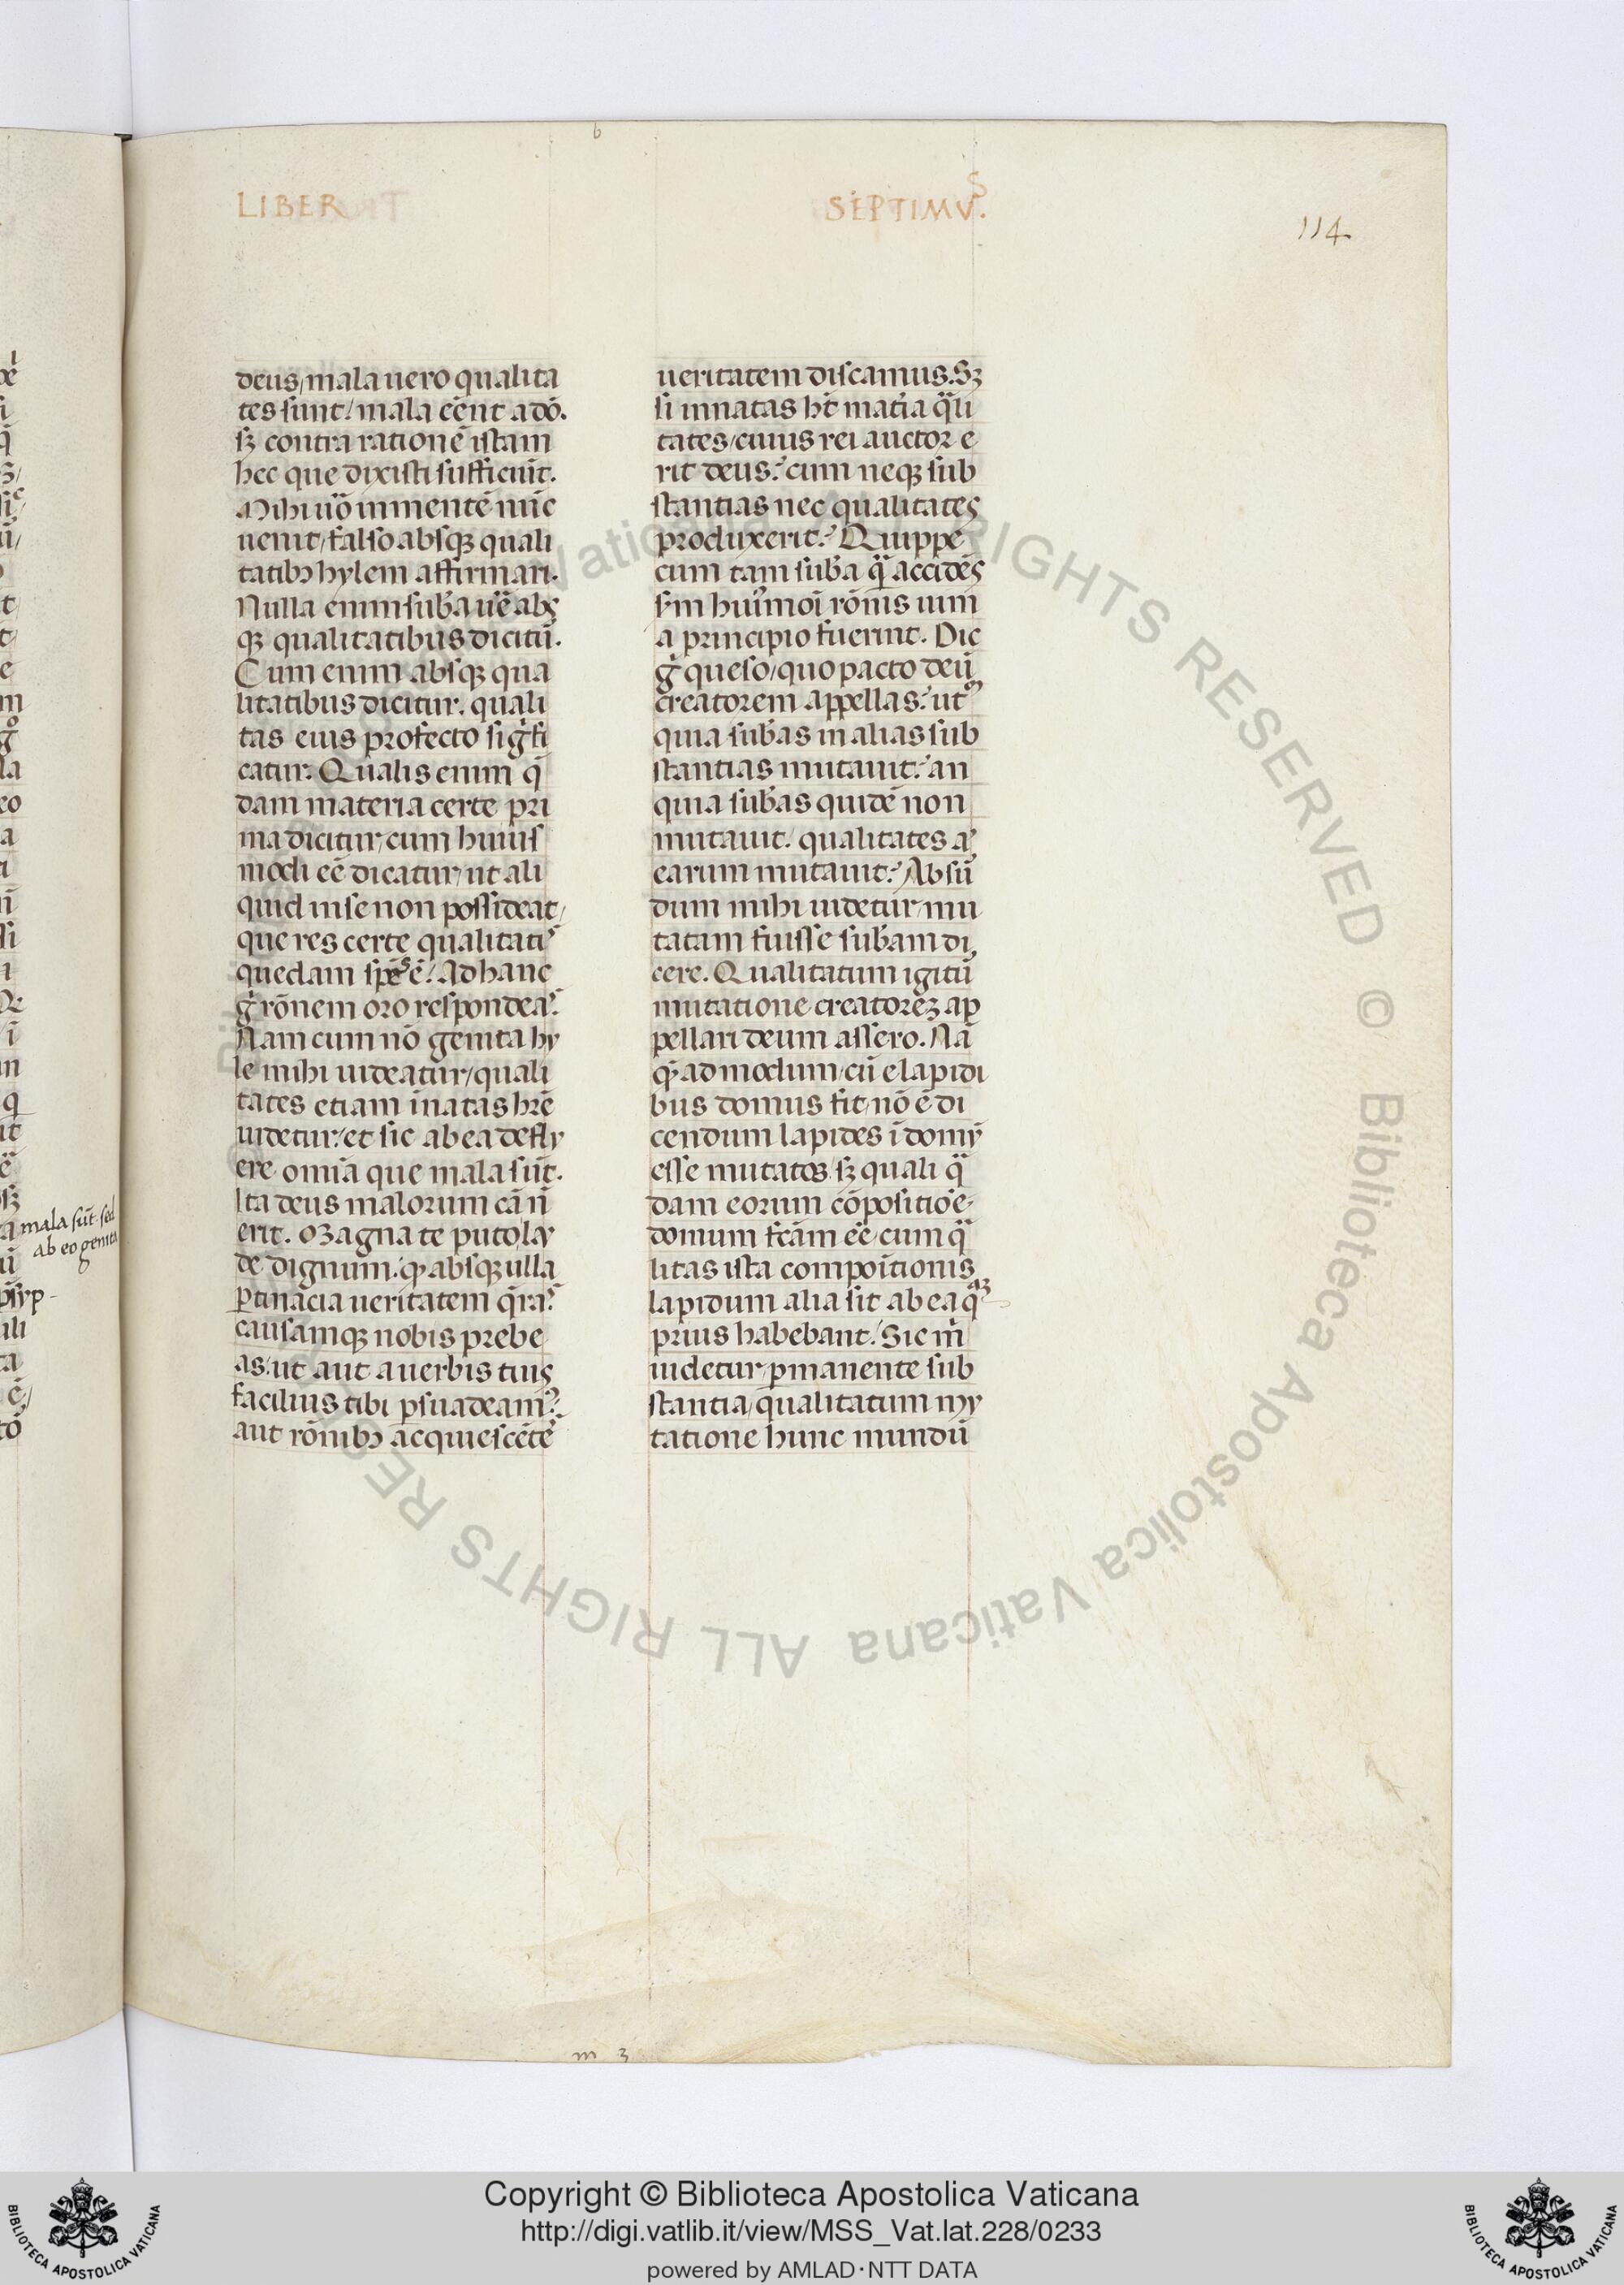 LIBER
SEPTIMVS.
114
deus/mala uero qualita
tes sunt/mala eēnt a dō.
sꝫ contra rationē istam
hec que dixisti sufficiūt.
Mihi uō in mentē nūc
uenit/falso absqꝫ quali
tatibꝫ hylem affirmari.
Nulla enim sub̄a uē̄ abs
qꝫ qualitatibus dicitū.
Cum enim absqꝫ qua
litatibus dicitur. quali
tas eius profecto sigͥfi
catur. Qualis enim q̄
dam materia certe pri
ma dicitur/cum huius
modi eē dicatur/ut ali
quid in se non possideat/
que res certe qualitatiˢ
quedam spēˢ ē. Ad hanc
gͥ rōnem oro respondeaˢ.
Nam cum nō genita hy
le mihi uideatur/quali
tates etiam īnatas hr̄e
uidetur/et sic ab ea defly
ere omīa que mala sūt.
Ita deus malorum cā n̄
erit. Magna te puto lay
de dignum. qꝫ absqꝫ ulla
ꝑtinacia ueritatem q̄raˢ.
causamqꝫ nobis prebe
as/ut aut a uerbis tuis
facilius tibi ꝑsuadeamˀ.
aut rōnibꝫ acquiescētēˢ
ueritatem discamus. Sꝫ
si innatas hꝫ mat̄ia q̄li
tates/cuius rei auctor e
rit deus? cum neqꝫ sub
stantias nec qualitates
produxerit? Quippe
cum tam sub̄a q̄ accidēs
sm̄ huīmōi rōnis uim
a principio fuerint. Dic
gͥ queso/quo pacto deū
creatorem appellas? utᵒ
quia sub̄as in alias sub
stantias mutauit? an
quia sub̄as quidē non
mutauit. qualitates aͥ
earum mutauit? Absū
dum mihi uidetur/mu
tatam fuisse sub̄am di
cere. Qualitatum igitū
mutatione creatorēꝫ ap
pellari deum assero. Nā
qͤ ad modum/cū e lapidi
bus domus fit/nō ē di
cendum lapides ī domū
esse mutatos. sꝫ quali q̄
dam eorum cōpositiōe
domum fc̄am eē. cum q̄
litas ista compōitionis
lapidum alia sit ab ea qᵃꝫ
prius habebant. Sic m̄
uidetur/ꝑmanente sub
stantia/qualitatum my
tatione hunc mundū
mala sūt. sed
ab eo genita
m 3
Copyright © Biblioteca Apostolica Vaticana
http://digi.vatlib.it/view/MSS_Vat.lat.228/0233
powered by AMLAD·NTT DATA
BIBLIOTECA APOSTOLICA VATICANA
BIBLIOTECA APOSTOLICA VATICANA